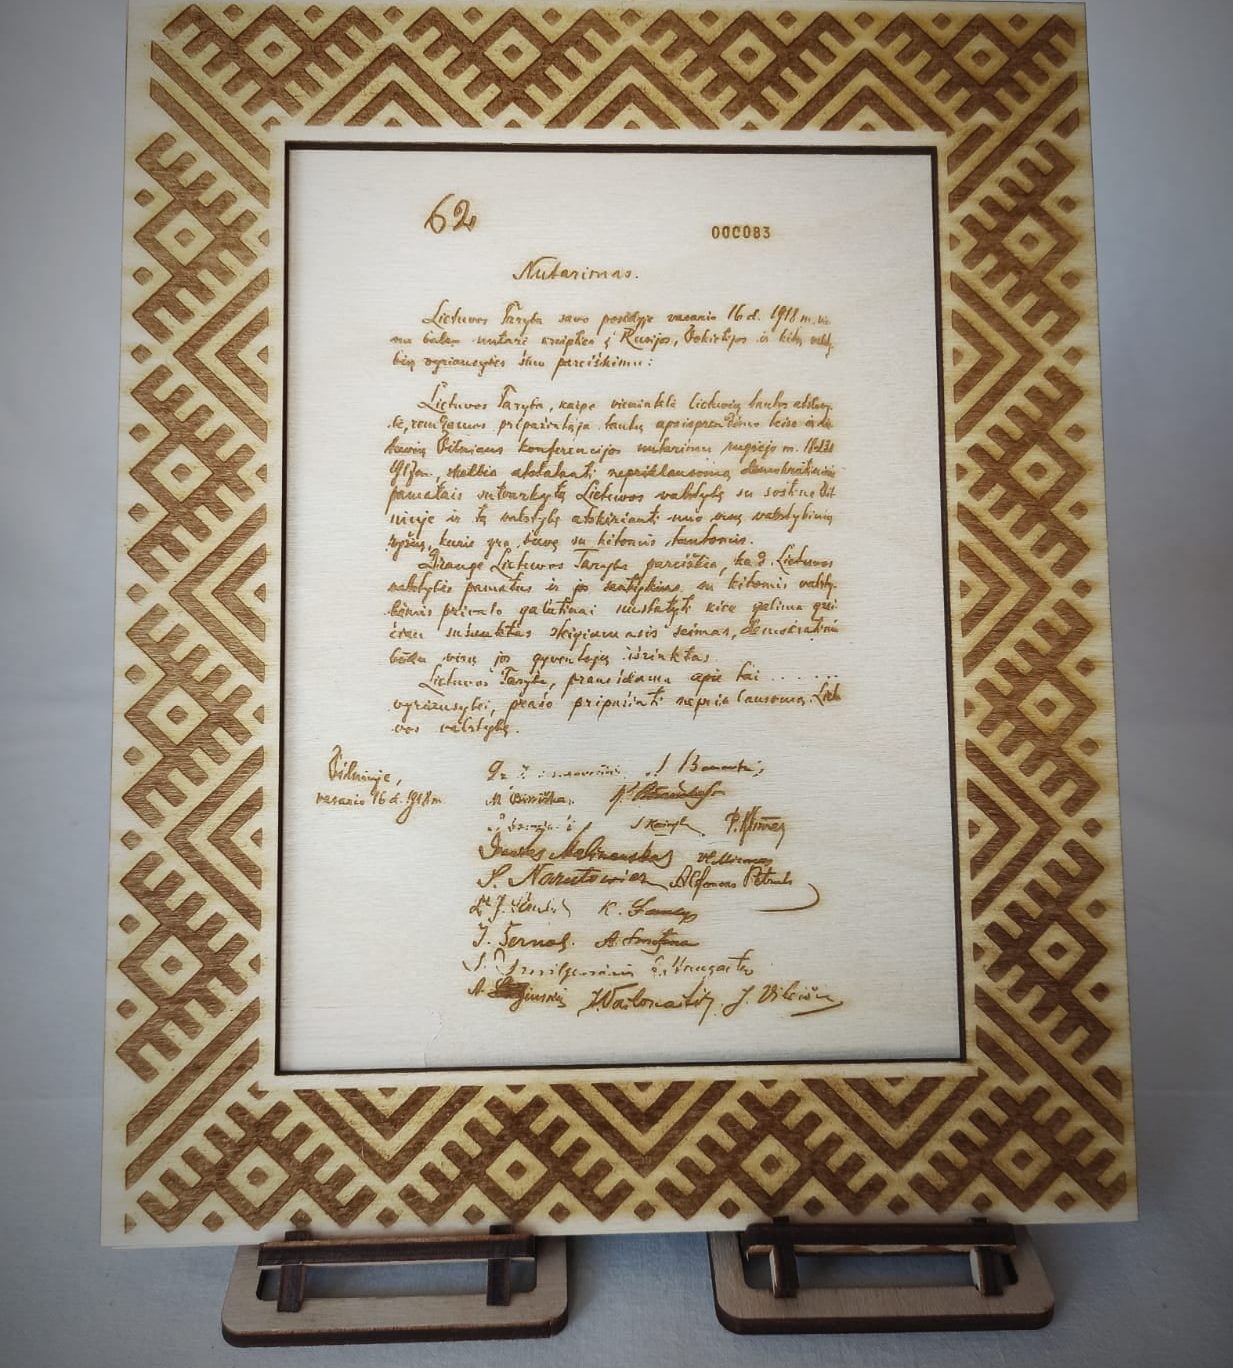 62
000083
Nutarimas.
Lietuvos Taryba savo posėdyje vasario 16 d. 1918 m. vie
nu balsu nutarė kreipties į Rusijos, Vokietijos ir kitų valsty-
bių vyriausybes šiuo pareiškimu:
Lietuvos Taryba, kaipo vienintelė lietuvių tautos atstovy-
bė, remdamos pripažintąja tautų apsisprendimo teise ir lie-
tuvių Vilniaus konferencijos nutarimu rugsėjo m. 18-23 d.
1917 m., skelbia atstatanti nepriklausomą demokratiniais
pamatais sutvarkytą Lietuvos valstybę su sostine Vil-
niuje ir tą valstybę atskirianti nuo visų valstybinių
ryšių, kurie yra buvę su kitomis tautomis.
Drauge Lietuvos Taryba pareiškia, kad Lietuvos
valstybės pamatus ir jos santykius su kitomis valsty-
bėmis privalo galutinai nustatyti kiek galima grei-
čiau sušauktas steigiamasis seimas, demokratiniu
būdu visų jos gyventojų išrinktas.
Lietuvos Taryba, pranešdama apie tai . . . . . .
vyriausybei, prašo pripažinti nepriklausomą Lietu-
vos valstybę.
Vilniuje,
vasario 16 d. 1918 m.
M. Biržiška.
P. Klimas
Donatas Malinauskas Vl. Mironas
S. Narutowicz Alfonsas Petrulis
K. Šaulys
J. Šernas. A. Smetona
J. Vailokaitis J. Vileišis